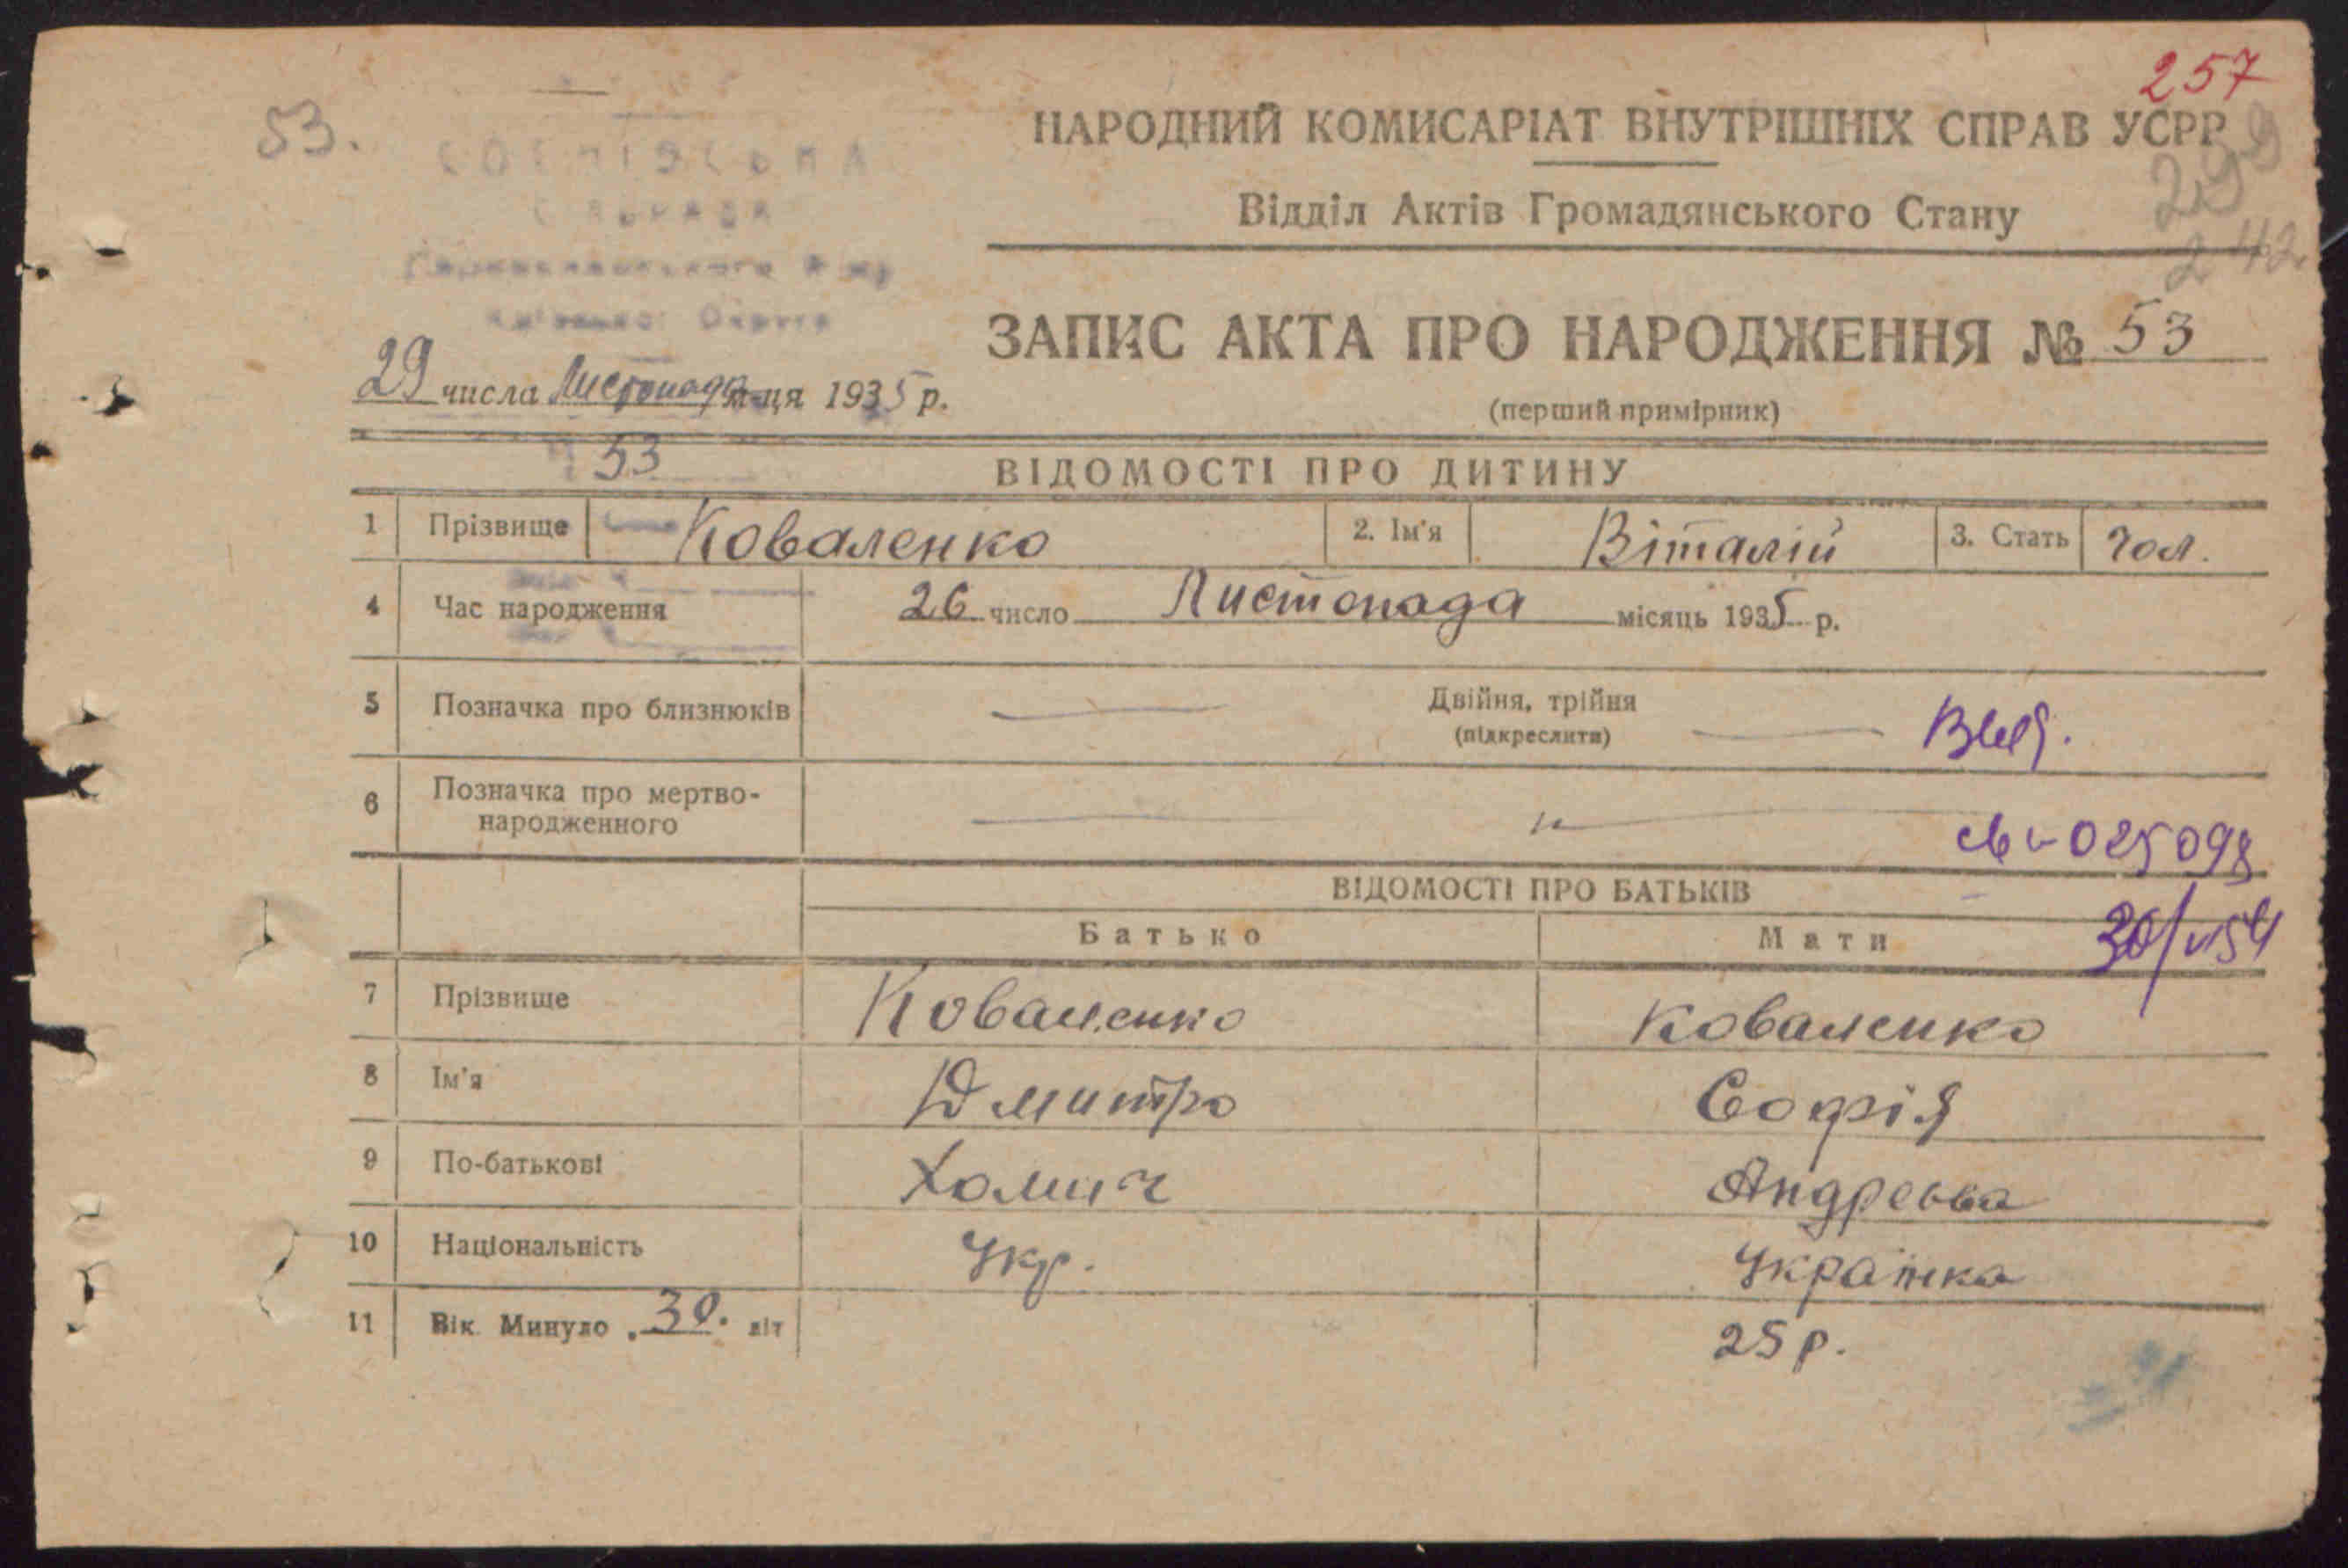 257
53.
НАРОДНИЙ КОМИСАРІАТ ВНУТРІШНІХ СПРАВ УСРР
299
Відділ Актів Громадянського Стану
242
ЗАПИС АКТА ПРО НАРОДЖЕННЯ № 53
29 числа Листопада м-ця 1935 р.
(перший примірник)
53
ВІДОМОСТІ ПРО ДИТИНУ
1 Прізвище Коваленко 2. Ім'я Віталій 3. Стать Чол.
4 Час народження 26 число Листопада місяць 1935 р.
5 Позначка про близнюків — Двійня, трійня (підкреслити) —
6 Позначка про мертвонародженного —
025098
ВІДОМОСТІ ПРО БАТЬКІВ
Батько Мати
7 Прізвище Коваленко Коваленко
8 Ім'я Дмитро Софія
9 По-батькові Хомич Андреевна
10 Національність Укр. Українка
11 Вік. Минуло 30. літ 25 р.